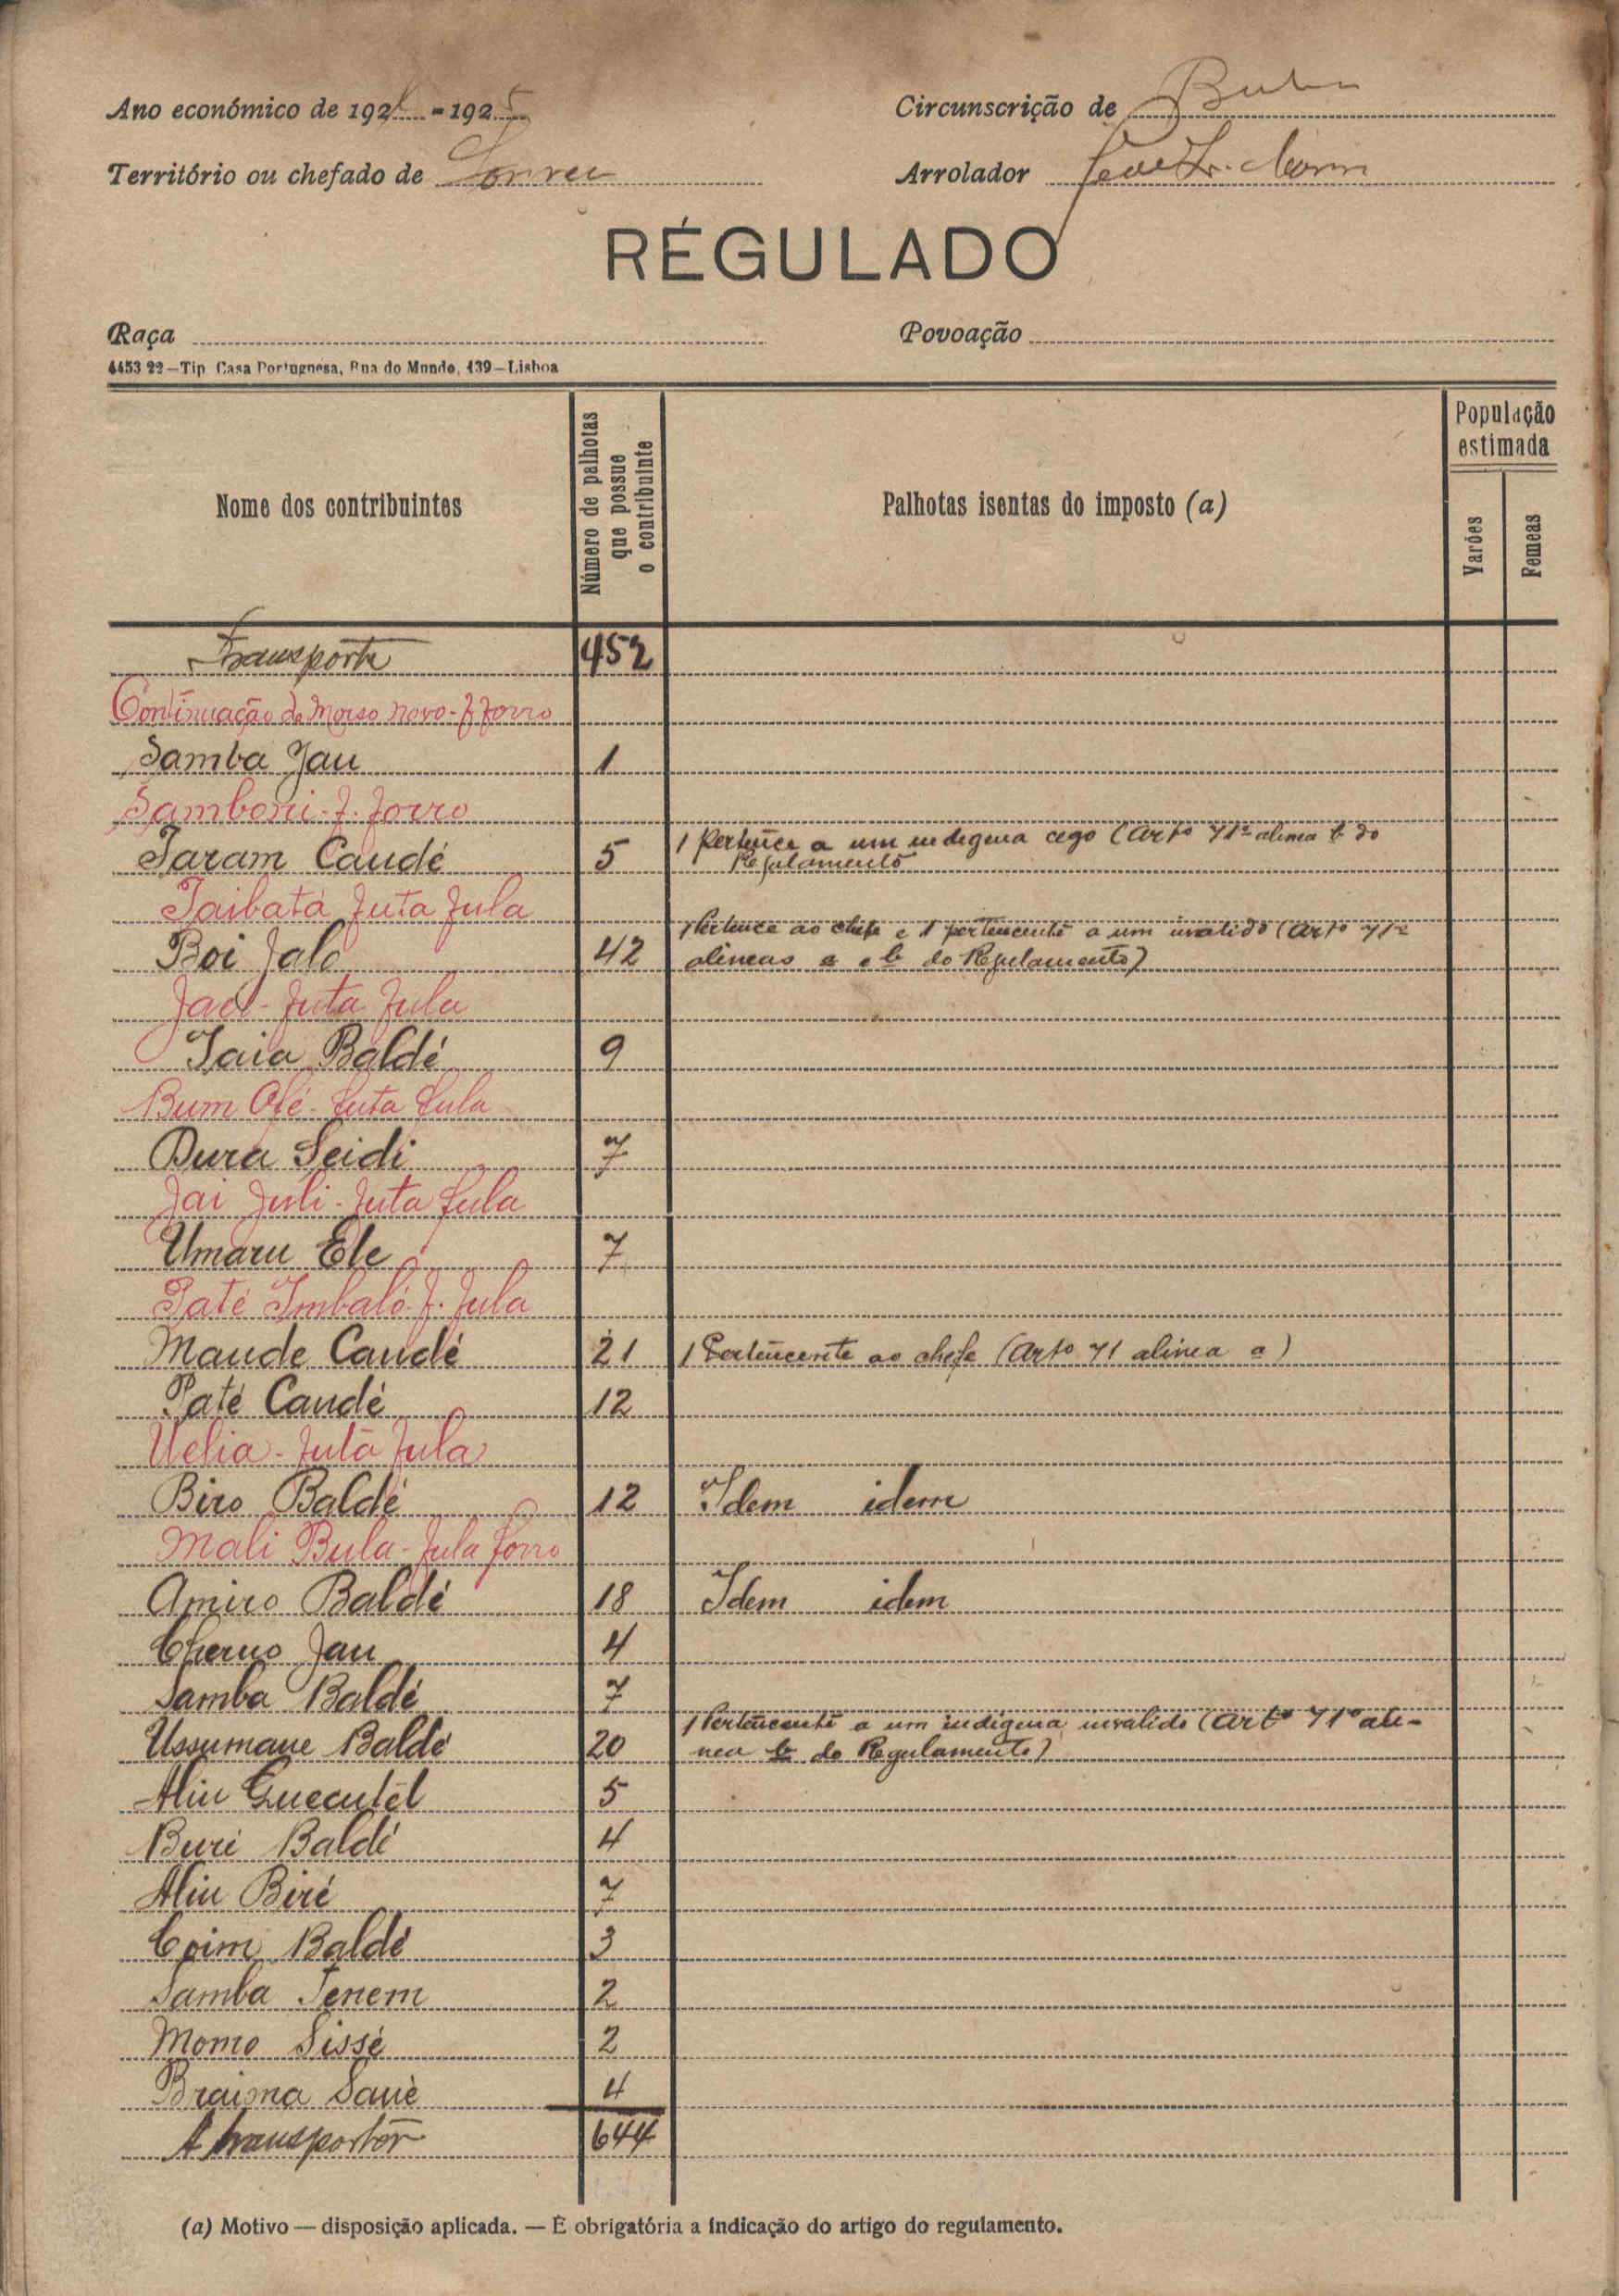 Ano económico de 1924-1925
Circunscrição de Buba
Território ou chefado de Corrco
Arrolador
RÉGULADO
Raça
Povoação
4453 22—Tip Casa Portuguesa, Rua do Mundo, 139—Lisboa
Nome dos contribuintes
Número de palhotas que possue o contribuinte
Palhotas isentas do imposto (a)
População estimada
Varões
Femeas
Transporte 452
Continuação de Morso novo - f forro
Samba Jau 1
Samboni - f. forro
Taram Caudé 5 1 Pertence a um indigena cego (Artº 71º alinea b do Regulamento
Taibatá futa fula
Boi Jaló 42 1 Pertence ao chefe e 1 pertencente a um invalido (Artº 71º
alineas a e b do Regulamento)
futa fula
Iaia Baldé 9
Bum Olé - futa fula
Dura Seidi 7
Jai Juli - futa fula
Umaru Ele 7
Paté Imbaló f. fula
Maude Caudé 21 1 Pertencente ao chefe (Artº 71 alinea a)
Paté Caudé 12
Uelia - futa fula
Biro Baldé 12 Idem idem
Mali Bula - fula forro
Amiro Baldé 18 Idem idem
Cherno Jau 4
Samba Baldé 7
Ussumane Baldé 20 1 Pertencente a um indigena invalido (Artº 71º ali-
nea b do Regulamento)
Aliu Guecutel 5
Buré Baldé 4
Aliu Biré 7
Coim Baldé 3
Samba Tenem 2
Momo Sissé 2
Braima Sané 4
A transportar 644
(a) Motivo — disposição aplicada. — É obrigatória a indicação do artigo do regulamento.